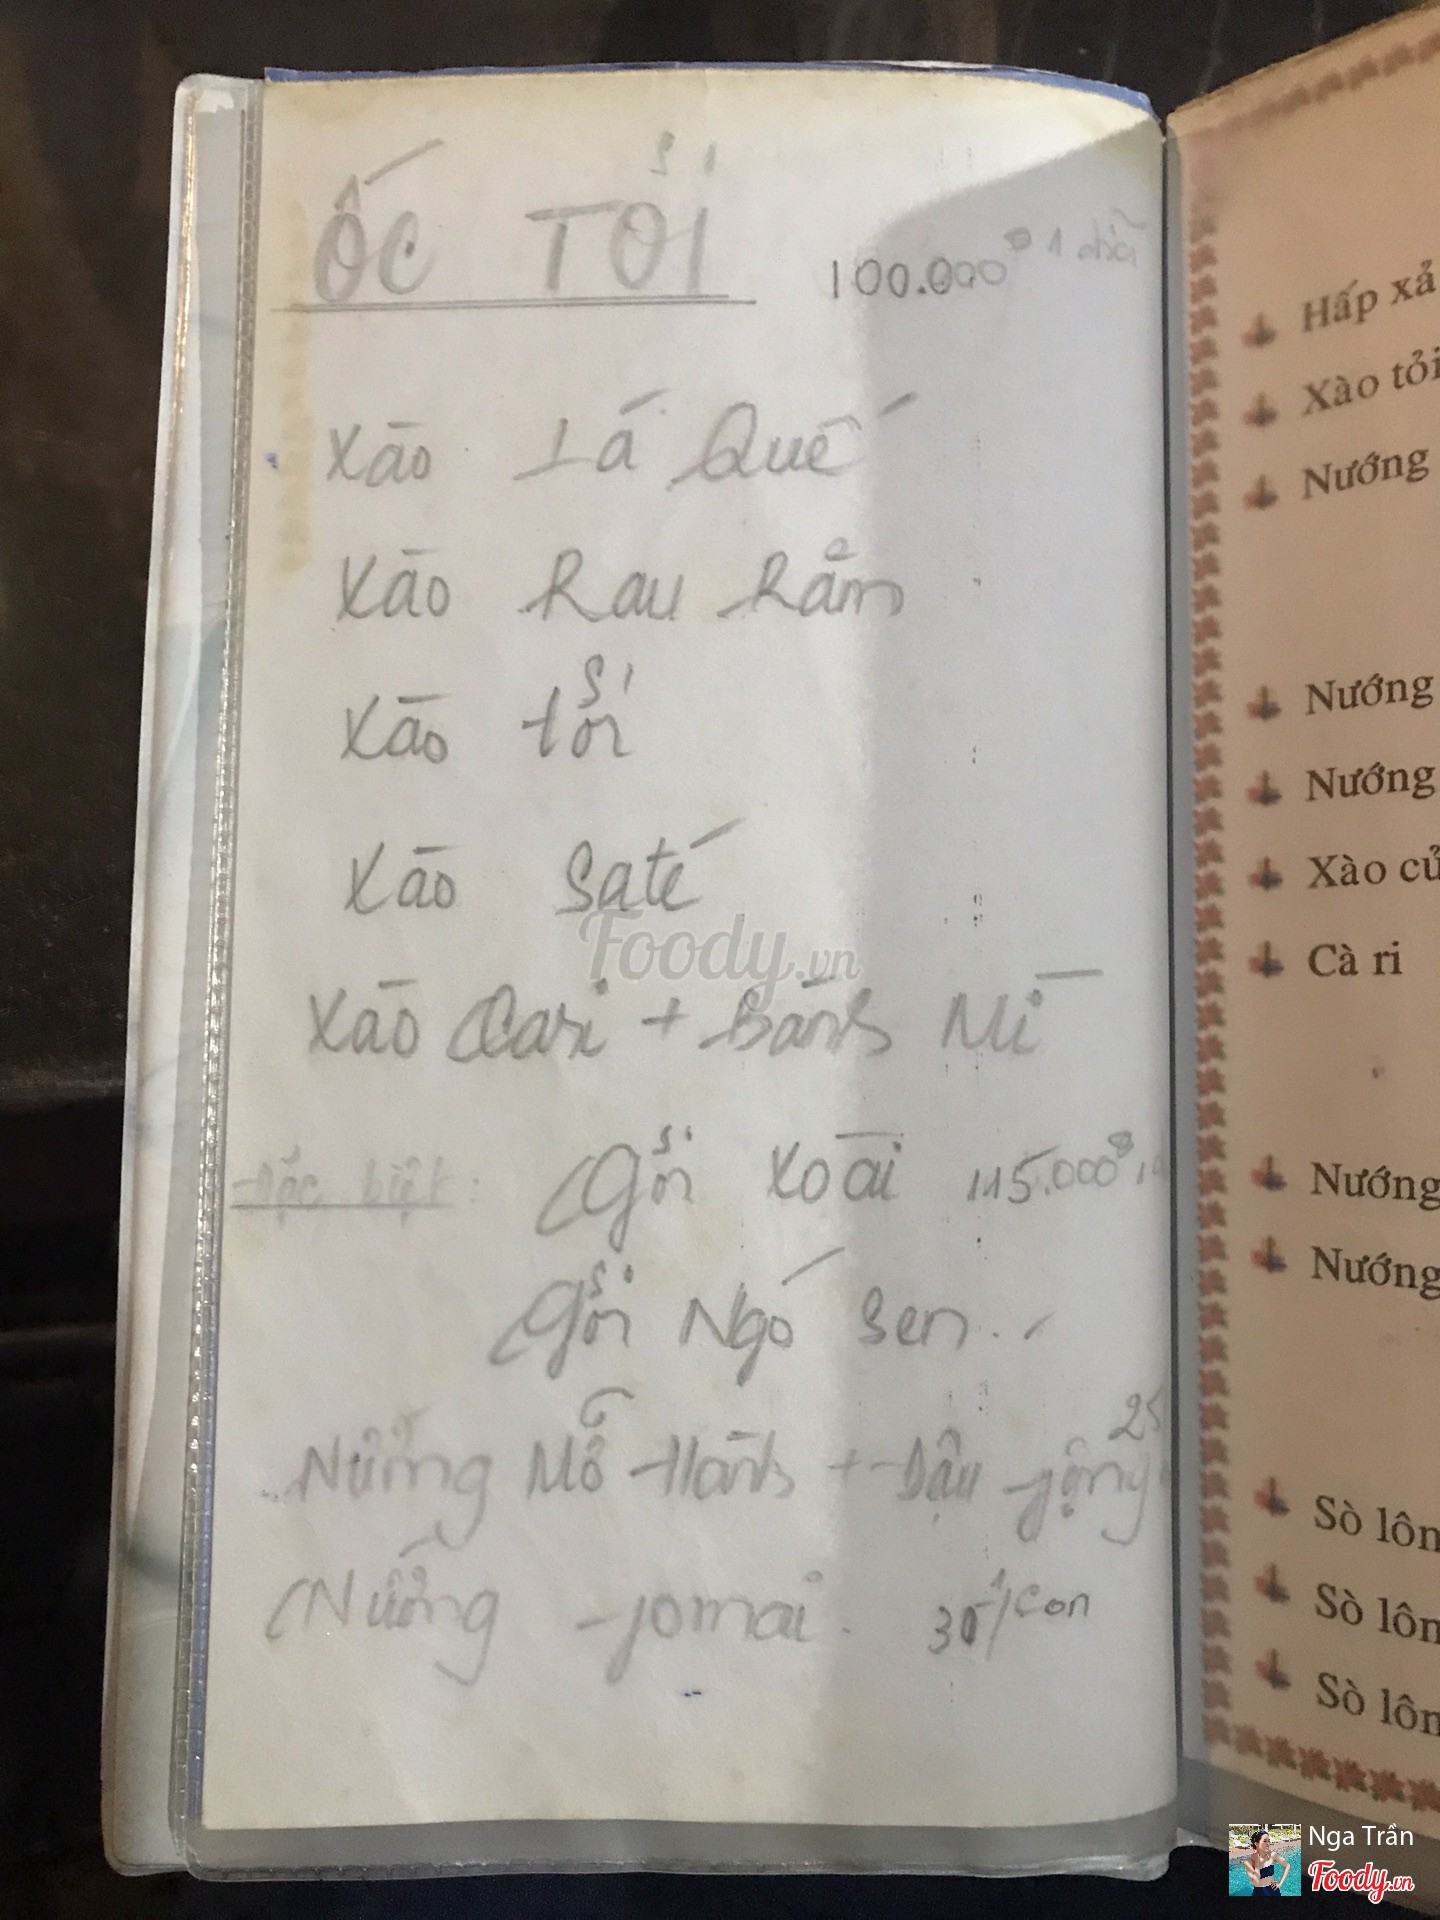 ỐC TỎI 100.000đ 1 dĩa
Xào Lá Quế
Xào Rau Răm
Xào tỏi
Xào Saté
Xào Cari + Bánh Mì
Đặc biệt: Gỏi Xoài 115.000đ
Gỏi Ngó Sen
Nướng Mỡ Hành + Đậu phộng 25
Nướng phomai. 30/con
Hấp xả
Xào tỏi
Nướng
Nướng
Nướng
Xào củ
Cà ri
Nướng
Nướng
Sò lôn
Sò lôn
Sò lôn
Foody.vn
Nga Trần
Foody.vn